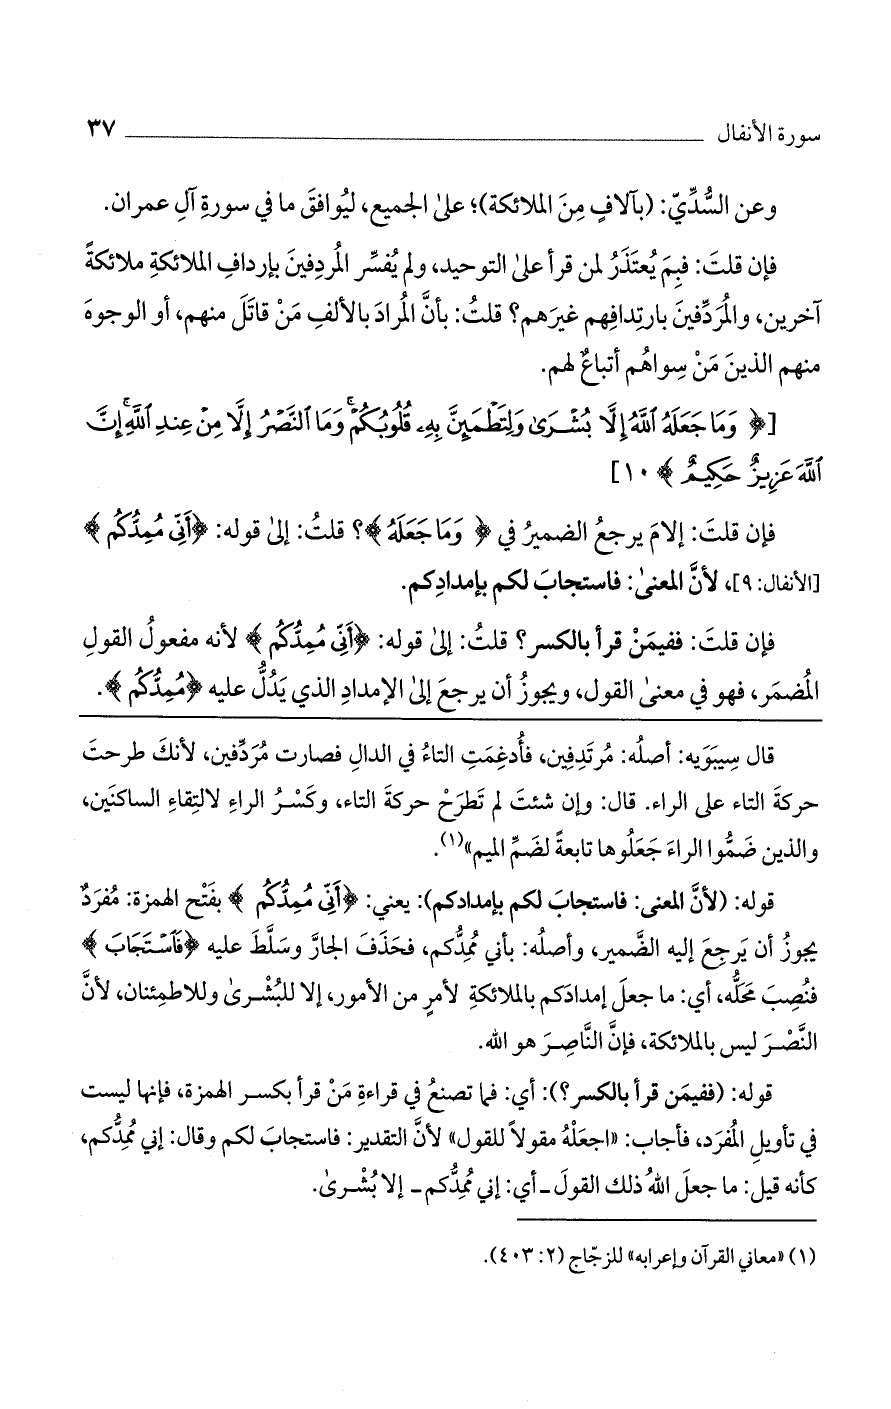 سورة الأنفال ٣٧
وعن السُّدِّيّ: (بآلافٍ مِنَ الملائكة)؛ على الجميع، ليُوافقَ ما في سورةِ آلِ عمران.
فإن قلتَ: فبِمَ يُعتَذَرُ لمن قرأ على التوحيد، ولم يُفسِّر المُردِفينَ بإردافِ الملائكةِ ملائكةً
آخرين، والمُرَدِّفينَ بارتِدافِهم غيرَهم؟ قلتُ: بأنَّ المُرادَ بالألفِ مَنْ قاتَلَ منهم، أو الوجوهَ
منهم الذينَ مَنْ سِواهُم أتباعٌ لهم.
[﴿ وَمَا جَعَلَهُ ٱللَّهُ إِلَّا بُشْرَىٰ وَلِتَطْمَئِنَّ بِهِۦ قُلُوبُكُمْ ۚ وَمَا ٱلنَّصْرُ إِلَّا مِنْ عِندِ ٱللَّهِ ۚ إِنَّ
ٱللَّهَ عَزِيزٌ حَكِيمٌ ﴾ ١٠]
فإن قلتَ: إلامَ يرجعُ الضميرُ في ﴿ وَمَا جَعَلَهُ ﴾؟ قلتُ: إلى قوله: ﴿أَنِّي مُمِدُّكُم ﴾
[الأنفال: ٩]، لأنَّ المعنىٰ: فاستجابَ لكم بإمدادِكم.
فإن قلتَ: ففيمَنْ قرأ بالكسر؟ قلتُ: إلى قوله: ﴿أَنِّي مُمِدُّكُم ﴾ لأنه مفعولُ القولِ
المُضمَر، فهو في معنىٰ القول، ويجوزُ أن يرجعَ إلى الإمدادِ الذي يَدُلُّ عليه ﴿مُمِدُّكُم ﴾.
قال سِيبَوَيه: أصلُه: مُرتَدِفِين، فأُدغِمَتِ التاءُ في الدالِ فصارت مُرَدِّفين، لأنكَ طرحتَ
حركةَ التاء على الراء. قال: وإن شئتَ لم تَطرَحْ حركةَ التاء، وكَسْرُ الراءِ لالتِقاءِ الساكنَين،
والذين ضَمُّوا الراءَ جَعَلُوها تابعةً لضَمِّ الميم»(١).
قوله: (لأنَّ المعنى: فاستجابَ لكم بإمدادكم): يعني: ﴿أَنِّي مُمِدُّكُم ﴾ بفَتْح الهمزة: مُفرَدٌ
يجوزُ أن يَرجِعَ إليه الضَّمير، وأصلُه: بأني مُمِدُّكم، فحَذَفَ الجارَّ وسَلَّطَ عليه ﴿فَٱسْتَجَابَ ﴾
فنُصِبَ مَحَلُّه، أي: ما جعلَ إمدادَكم بالملائكةِ لأمرٍ من الأمور، إلا للبُشْرىٰ وللاطمِئنان، لأنَّ
النَّصْرَ ليس بالملائكة، فإنَّ النَّاصِرَ هو الله.
قوله: (ففيمَن قرأ بالكسر؟): أي: فما تصنعُ في قراءةِ مَنْ قرأ بكسر الهمزة، فإنها ليست
في تأويلِ المُفرَد، فأجاب: «اجعَلْهُ مقولاً للقول» لأنَّ التقدير: فاستجابَ لكم وقال: إني مُمِدُّكم،
كأنه قيل: ما جعلَ اللهُ ذلك القولَ ـ أي: إني مُمِدُّكم ـ إلا بُشْرىٰ.
(١) «معاني القرآن وإعرابه» للزجّاج (٢: ٤٠٣).